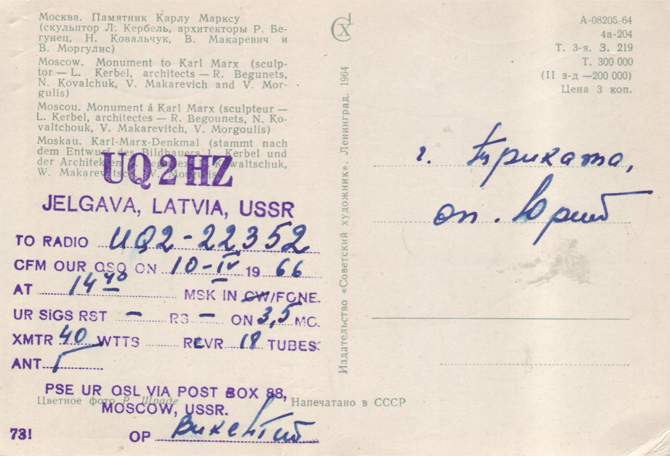 Москва. Памятник Карлу Марксу
(скульптор Л. Кербель, архитекторы Р. Бе-
гунец, Н. Ковальчук, В. Макаревич и
В. Моргулис)
Moscow. Monument to Karl Marx (sculp-
tor — L. Kerbel, architects — R. Begunets,
N. Kovalchuk, V. Makarevich and V. Mor-
gulis)
Moscou. Monument á Karl Marx (sculpteur —
L. Kerbel, architectes — R. Begounets, N. Ko-
valtchouk, V. Makarevitch, V. Morgoulis)
Moskau. Karl-Marx-Denkmal (stammt nach
dem Entwurf des Bildhauers L. Kerbel und
der Architekten Kowaltschuk,
W. Makarewitsch
UQ2HZ
JELGAVA, LATVIA, USSR
TO RADIO UQ2-22352
CFM OUR QSO ON 10-IV 1966
AT 14 40 MSK IN CW/FONE.
UR SIGS RST - RS - ON 3,5 MC.
XMTR 40 WTTS RCVR 18 TUBES.
ANT Г
PSE UR QSL VIA POST BOX 88,
MOSCOW, USSR.
Цветное фото Р.
731 OP Викентий
Напечатано в СССР
Издательство «Советский художник». Ленинград. 1964
СХ
А-08205-64
4а-204
Т. 3-я. З. 219
Т. 300 000
(II з-д —200 000)
Цена 3 коп.
г. Триката,
оп. Юрий